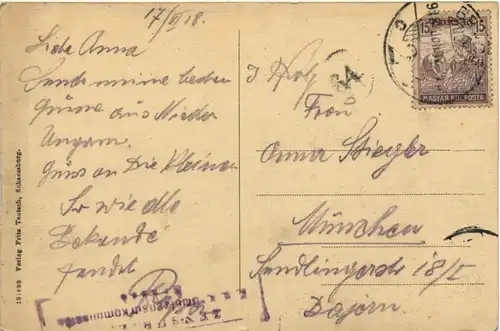 17/II 18.
Liebe Anna
Sende meine besten
Grüsse aus Nieder
Ungarn.
Gruss an Die Kleinen
So wie alle
Bekande
sendet
19:898 Verlag Fritz Teutsch, Schaessburg.
15 15
MAGYAR KIR. POSTA
Frau
Anna Stiegler
München
Sendlingerstr 18/I
Bajern.